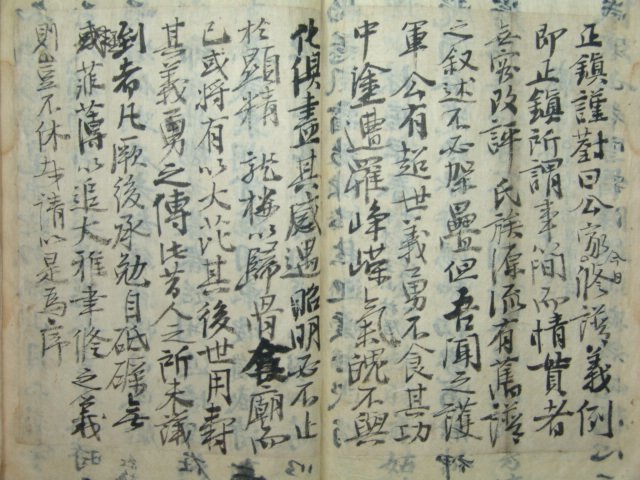 正鎮謹對曰公家修譜義例
今日
即止鎮所謂事簡而情貫者
無容改評 氏族源流有舊譜
之叙述不必架疊但吾聞之護
軍公有超世義勇不食其功
中塗遭罹峰嶸氣魄不與
化俱盡其感遇昭明必不止
於顯精 龍樓以歸骨食廟而
已或將有以大花其後世用對
其義勇之傳此昔人之所未議
到者凡厥後承勉自砥礪無
或菲薄以追大雅聿修之義
則豈不休哉請以是為序